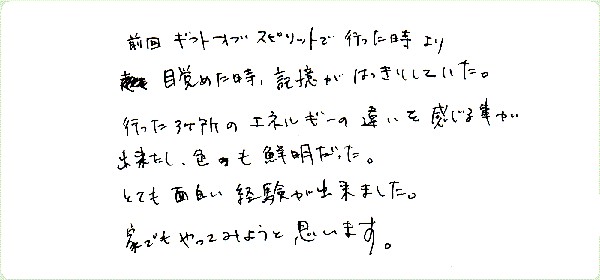 前回 ギフトオブスピリットで 行った時より
目覚めた時、記憶が はっきりしていた。
行った 3ヶ所の エネルギーの 違いを 感じる事が
出来たし、色も 鮮明だった。
とても 面白い 経験が出来ました。
家でも やってみようと 思います。